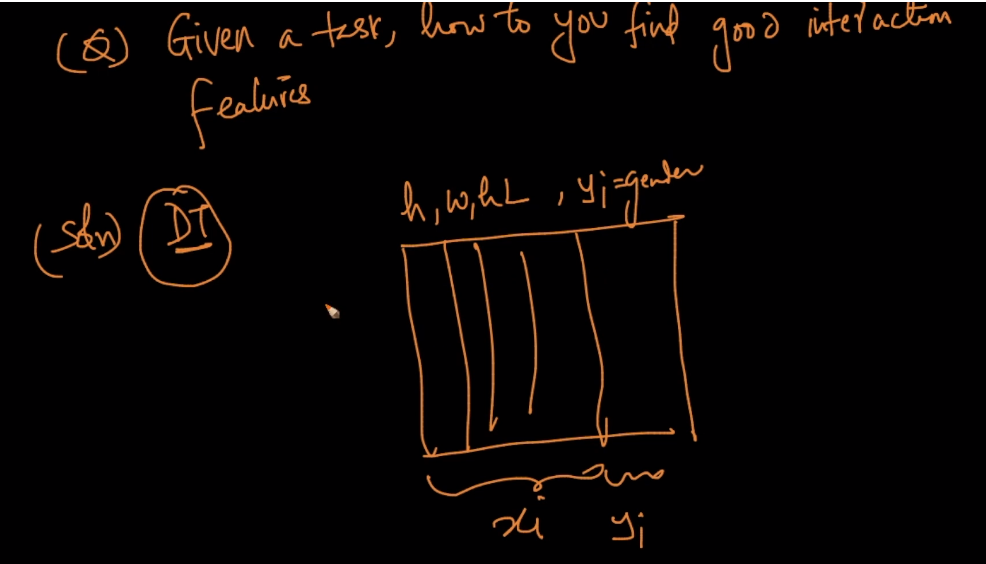 (Q) Given a task, how to you find good interaction
features
(Soln) DT
h, w, hL, yi=gender
xi yi